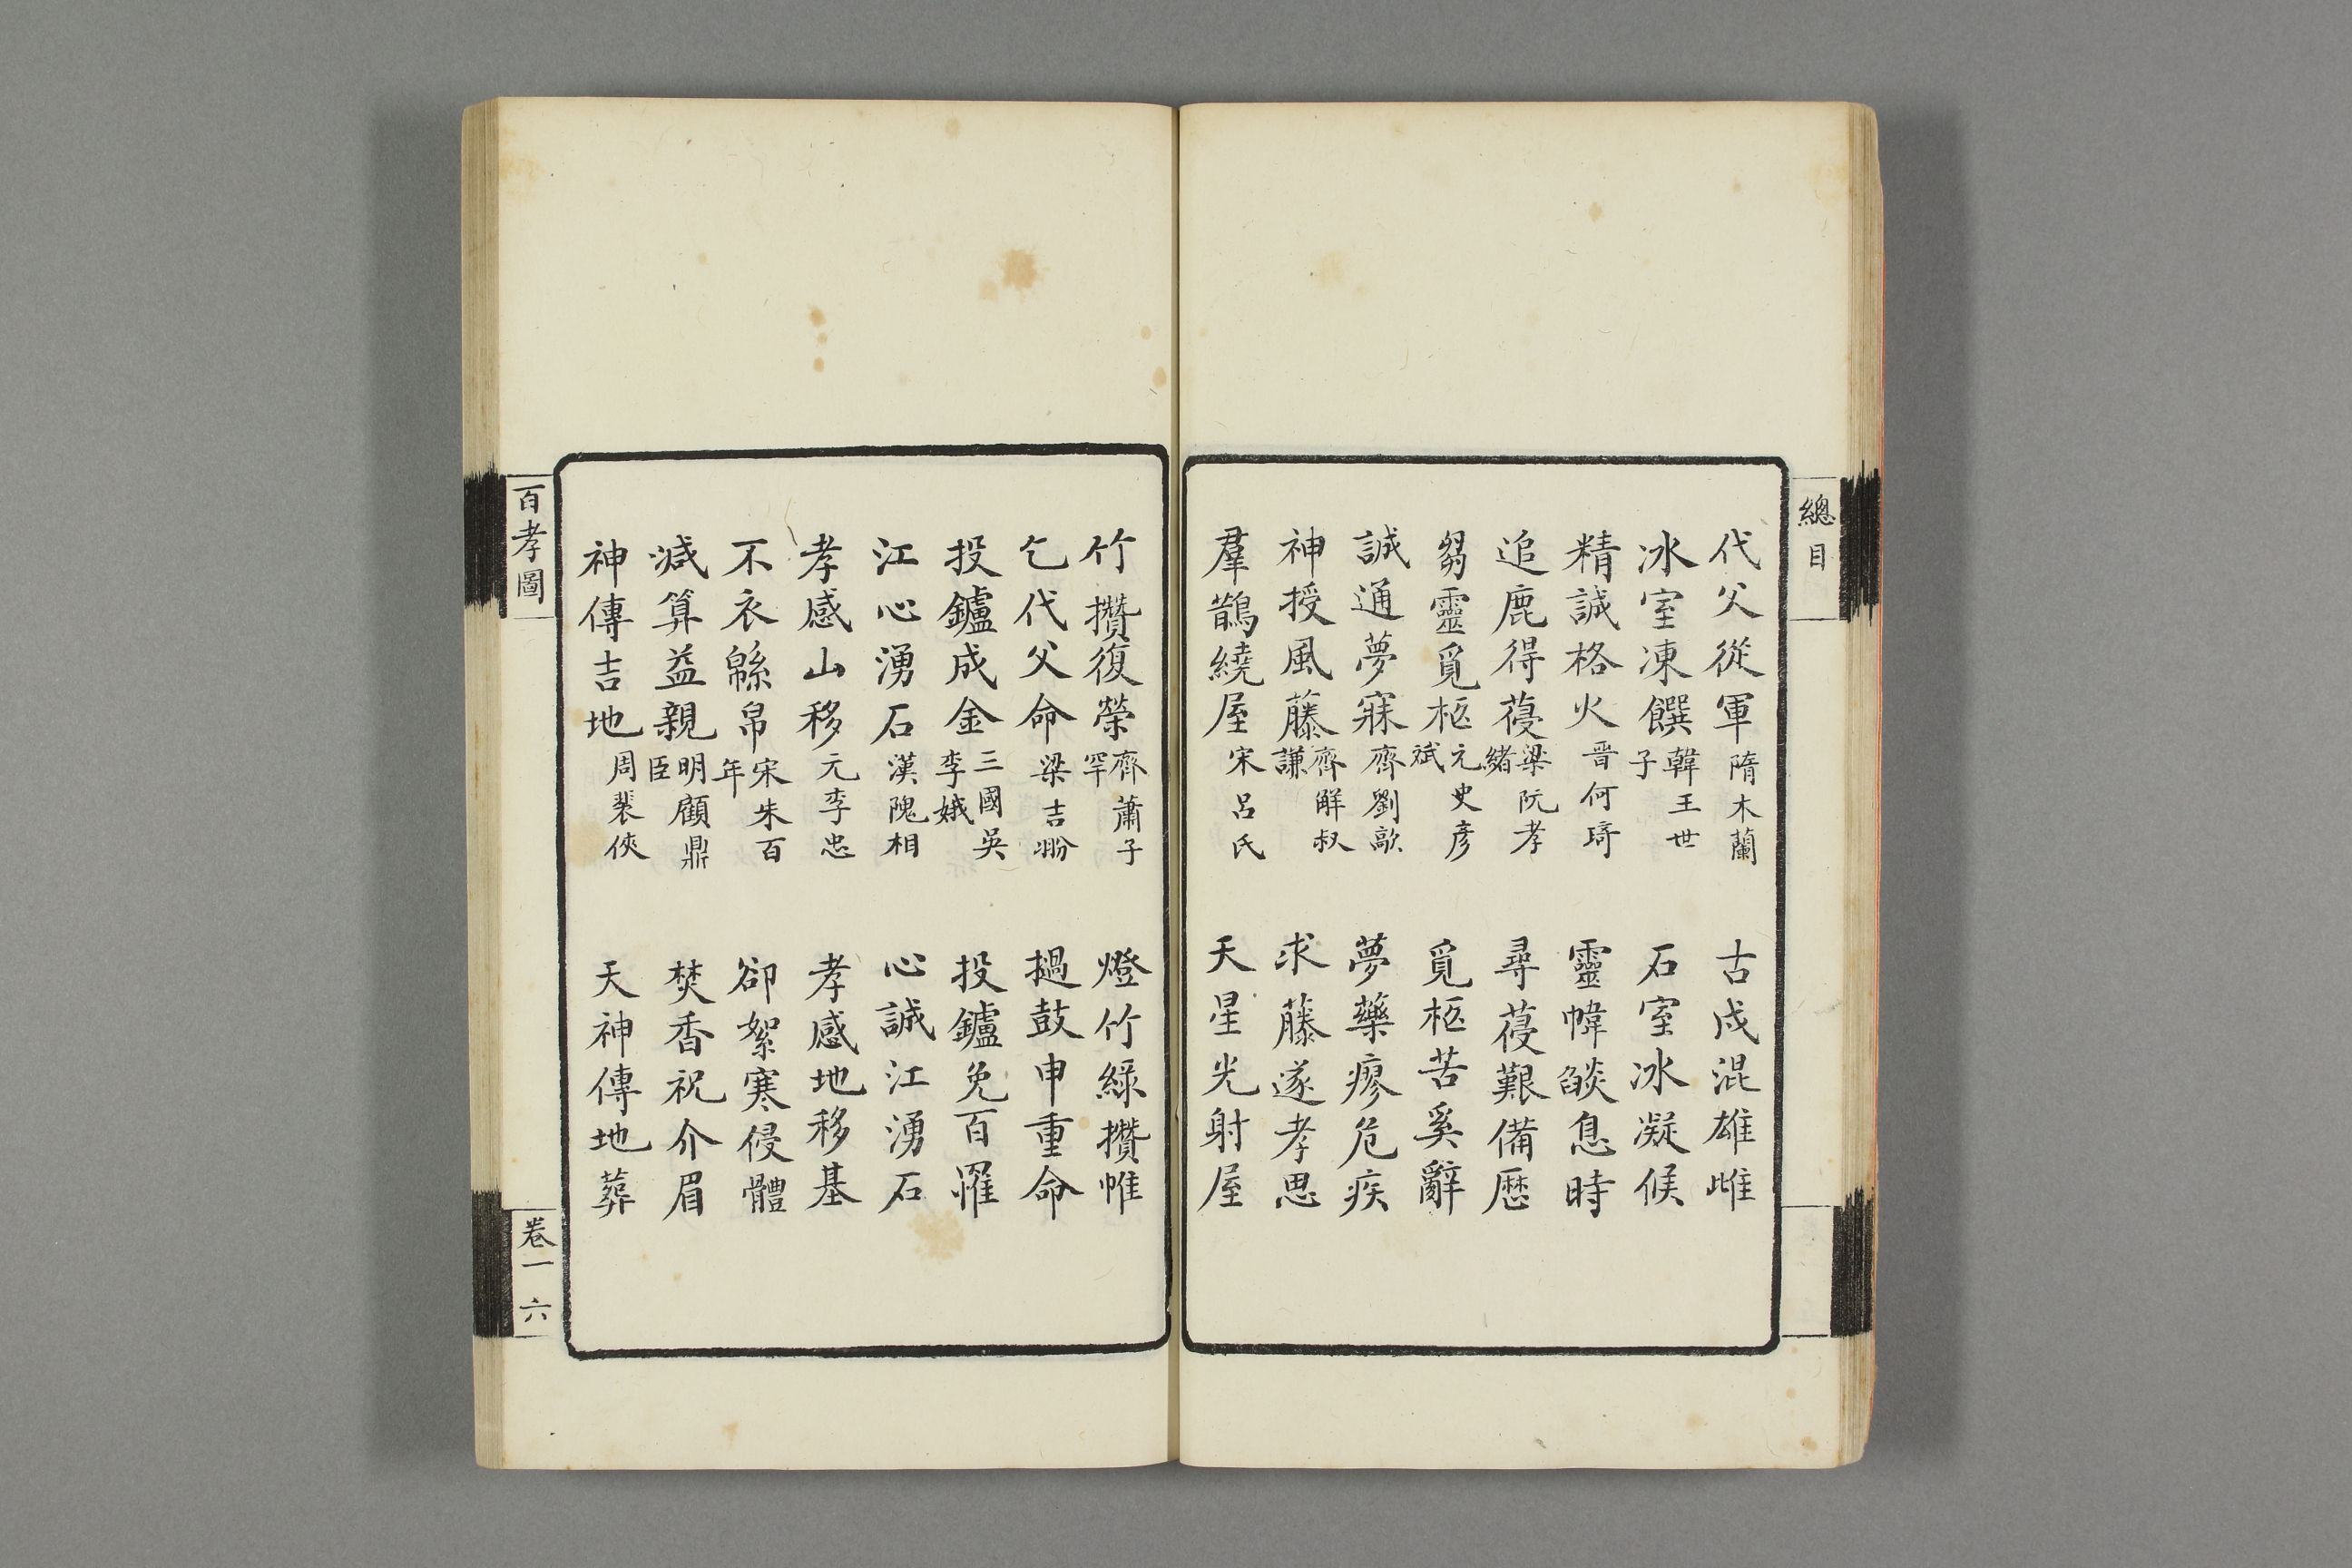 總目
代父從軍 隋木蘭 古戍混雄雌
冰室凍饌 韓王世子 石室冰凝候
精誠格火 晋何琦 靈幃燄息時
追鹿得葠 梁阮孝緒 尋葠艱備歷
芻靈覓柩 元史彦斌 覓柩苦奚辭
誠通夢寐 齊劉歊 夢藥瘳危疾
神授風藤 齊解叔謙 求藤遂孝思
羣鵲繞屋 宋呂氏 天星光射屋
竹攢復榮 齊蕭子罕 燈竹綠攢帷
乞代父命 梁吉翂 撾鼓申重命
投鑪成金 三國吳李娥 投鑪免百罹
江心湧石 漢隗相 心誠江湧石
孝感山移 元李忠 孝感地移基
不衣緜帛 宋朱百年 卻絮寒侵體
減算益親 明顧鼎臣 焚香祝介眉
神傳吉地 周裴俠 天神傳地葬
百孝圖
卷一 六